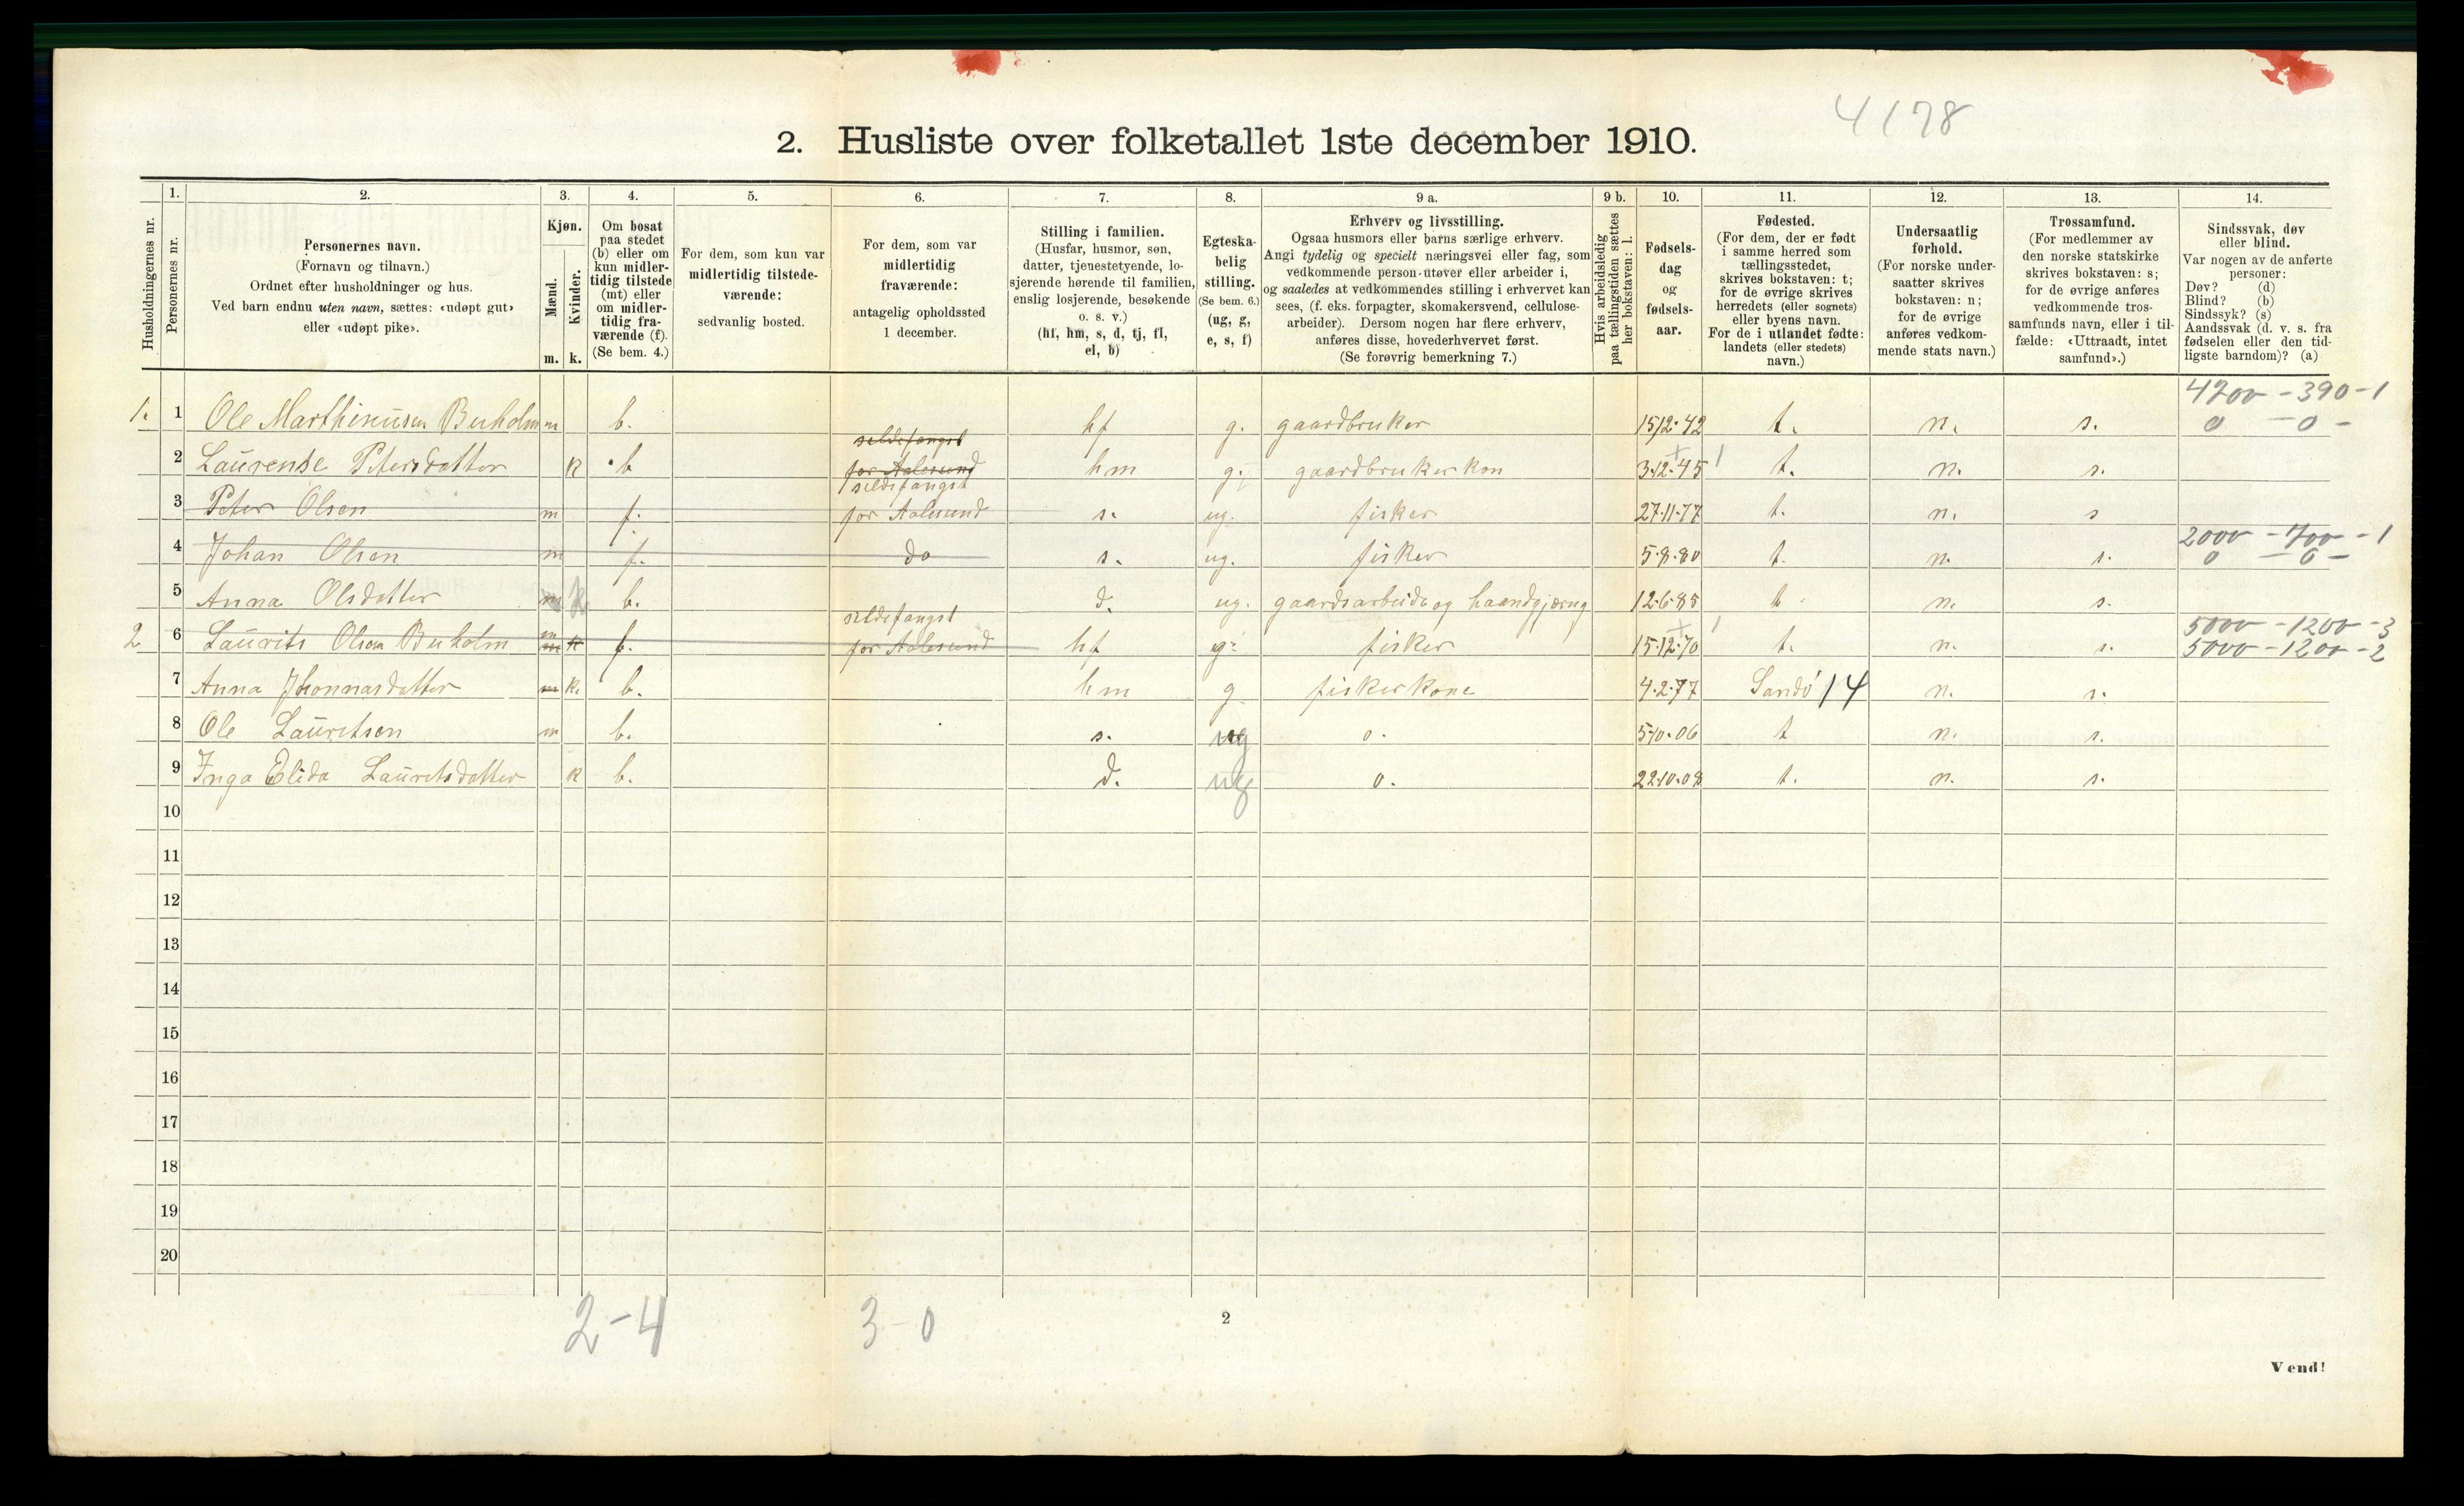 4178
2. Husliste over folketallet 1ste december 1910.
Husholdningernes nr.
1. Personernes nr.
2. Personernes navn.
(Fornavn og tilnavn.)
Ordnet efter husholdninger og hus.
Ved barn endnu uten navn, sættes: «udøpt gut»
eller «udøpt pike».
3. Kjøn.
Mænd. m.
Kvinder. k.
4. Om bosat
paa stedet
(b) eller om
kun midler-
tidig tilstede
(mt) eller
om midler-
tidig fra-
værende (f).
(Se bem. 4.)
5. For dem, som kun var
midlertidig tilstede-
værende:
sedvanlig bosted.
6. For dem, som var
midlertidig
fraværende:
antagelig opholdssted
1 december.
7. Stilling i familien.
(Husfar, husmor, søn,
datter, tjenestetyende, lo-
sjerende hørende til familien,
enslig losjerende, besøkende
o. s. v.)
(hf, hm, s, d, tj, fl,
el, b)
8. Egteska-
belig
stilling.
(Se bem. 6.)
(ug, g,
e, s, f)
9 a. Erhverv og livsstilling.
Ogsaa husmors eller barns særlige erhverv.
Angi tydelig og specielt næringsvei eller fag, som
vedkommende person utøver eller arbeider i,
og saaledes at vedkommendes stilling i erhvervet kan
sees, (f. eks. forpagter, skomakersvend, cellulose-
arbeider). Dersom nogen har flere erhverv,
anføres disse, hovederhvervet først.
(Se forøvrig bemerkning 7.)
9 b. Hvis arbeidsledig
paa tællingstiden sættes
her bokstaven: l.
10. Fødsels-
dag
og
fødsels-
aar.
11. Fødested.
(For dem, der er født
i samme herred som
tællingsstedet,
skrives bokstaven: t;
for de øvrige skrives
herredets (eller sognets)
eller byens navn.
For de i utlandet fødte:
landets (eller stedets)
navn.)
12. Undersaatlig
forhold.
(For norske under-
saatter skrives
bokstaven: n;
for de øvrige
anføres vedkom-
mende stats navn.)
13. Trossamfund.
(For medlemmer av
den norske statskirke
skrives bokstaven: s;
for de øvrige anføres
vedkommende tros-
samfunds navn, eller i til-
fælde: «Uttraadt, intet
samfund».)
14. Sindssvak, døv
eller blind.
Var nogen av de anførte
personer:
Døv? (d)
Blind? (b)
Sindssyk? (s)
Aandssvak (d. v. s. fra
fødselen eller den tid-
ligste barndom)? (a)
4200 - 390 - 1
1. 1 Ole Marthinusen Buholm m b. hf g. gaardbruker 15/2·42 t. n. s. 0 - 0 -
sildefangst
2 Laurense Petersdatter k b for Aalesund hm g. gaardbrukerkon 3·12·45 t. n. s.
sildefangst
3 Peter Olsen m f. for Aalesund s. ug. fisker 27·11·77 t. n. s
2000 - 700 - 1
4 Johan Olsen m f. do s. ug. fisker 5·8·80 t. n. s. 0 - 0 -
5 Anna Olsdatter m k b. d. ug. gaardsarbeide og haandgjerng 12·6·85 t n. s.
sildefangst 5000 - 1200 - 3
2 6 Laurits Olsen Buholm m m k f. for Aalesund hf g. fisker 15·12·70 t. n. s. 5000 - 1200 - 2
7 Anna Jhonnasdatter m k. b. hm g fiskerkone 4·2·77 Sandö 14 n. s.
8 Ole Lauritsen m b. s. ug o. 5·10·06 t n. s.
9 Inga Elida Lauritsdatter k b. d. ug o. 22·10·08 t. n. s.
10
11
12
13
14
15
16
17
18
19
20
2-4 3-0
2
Vend!